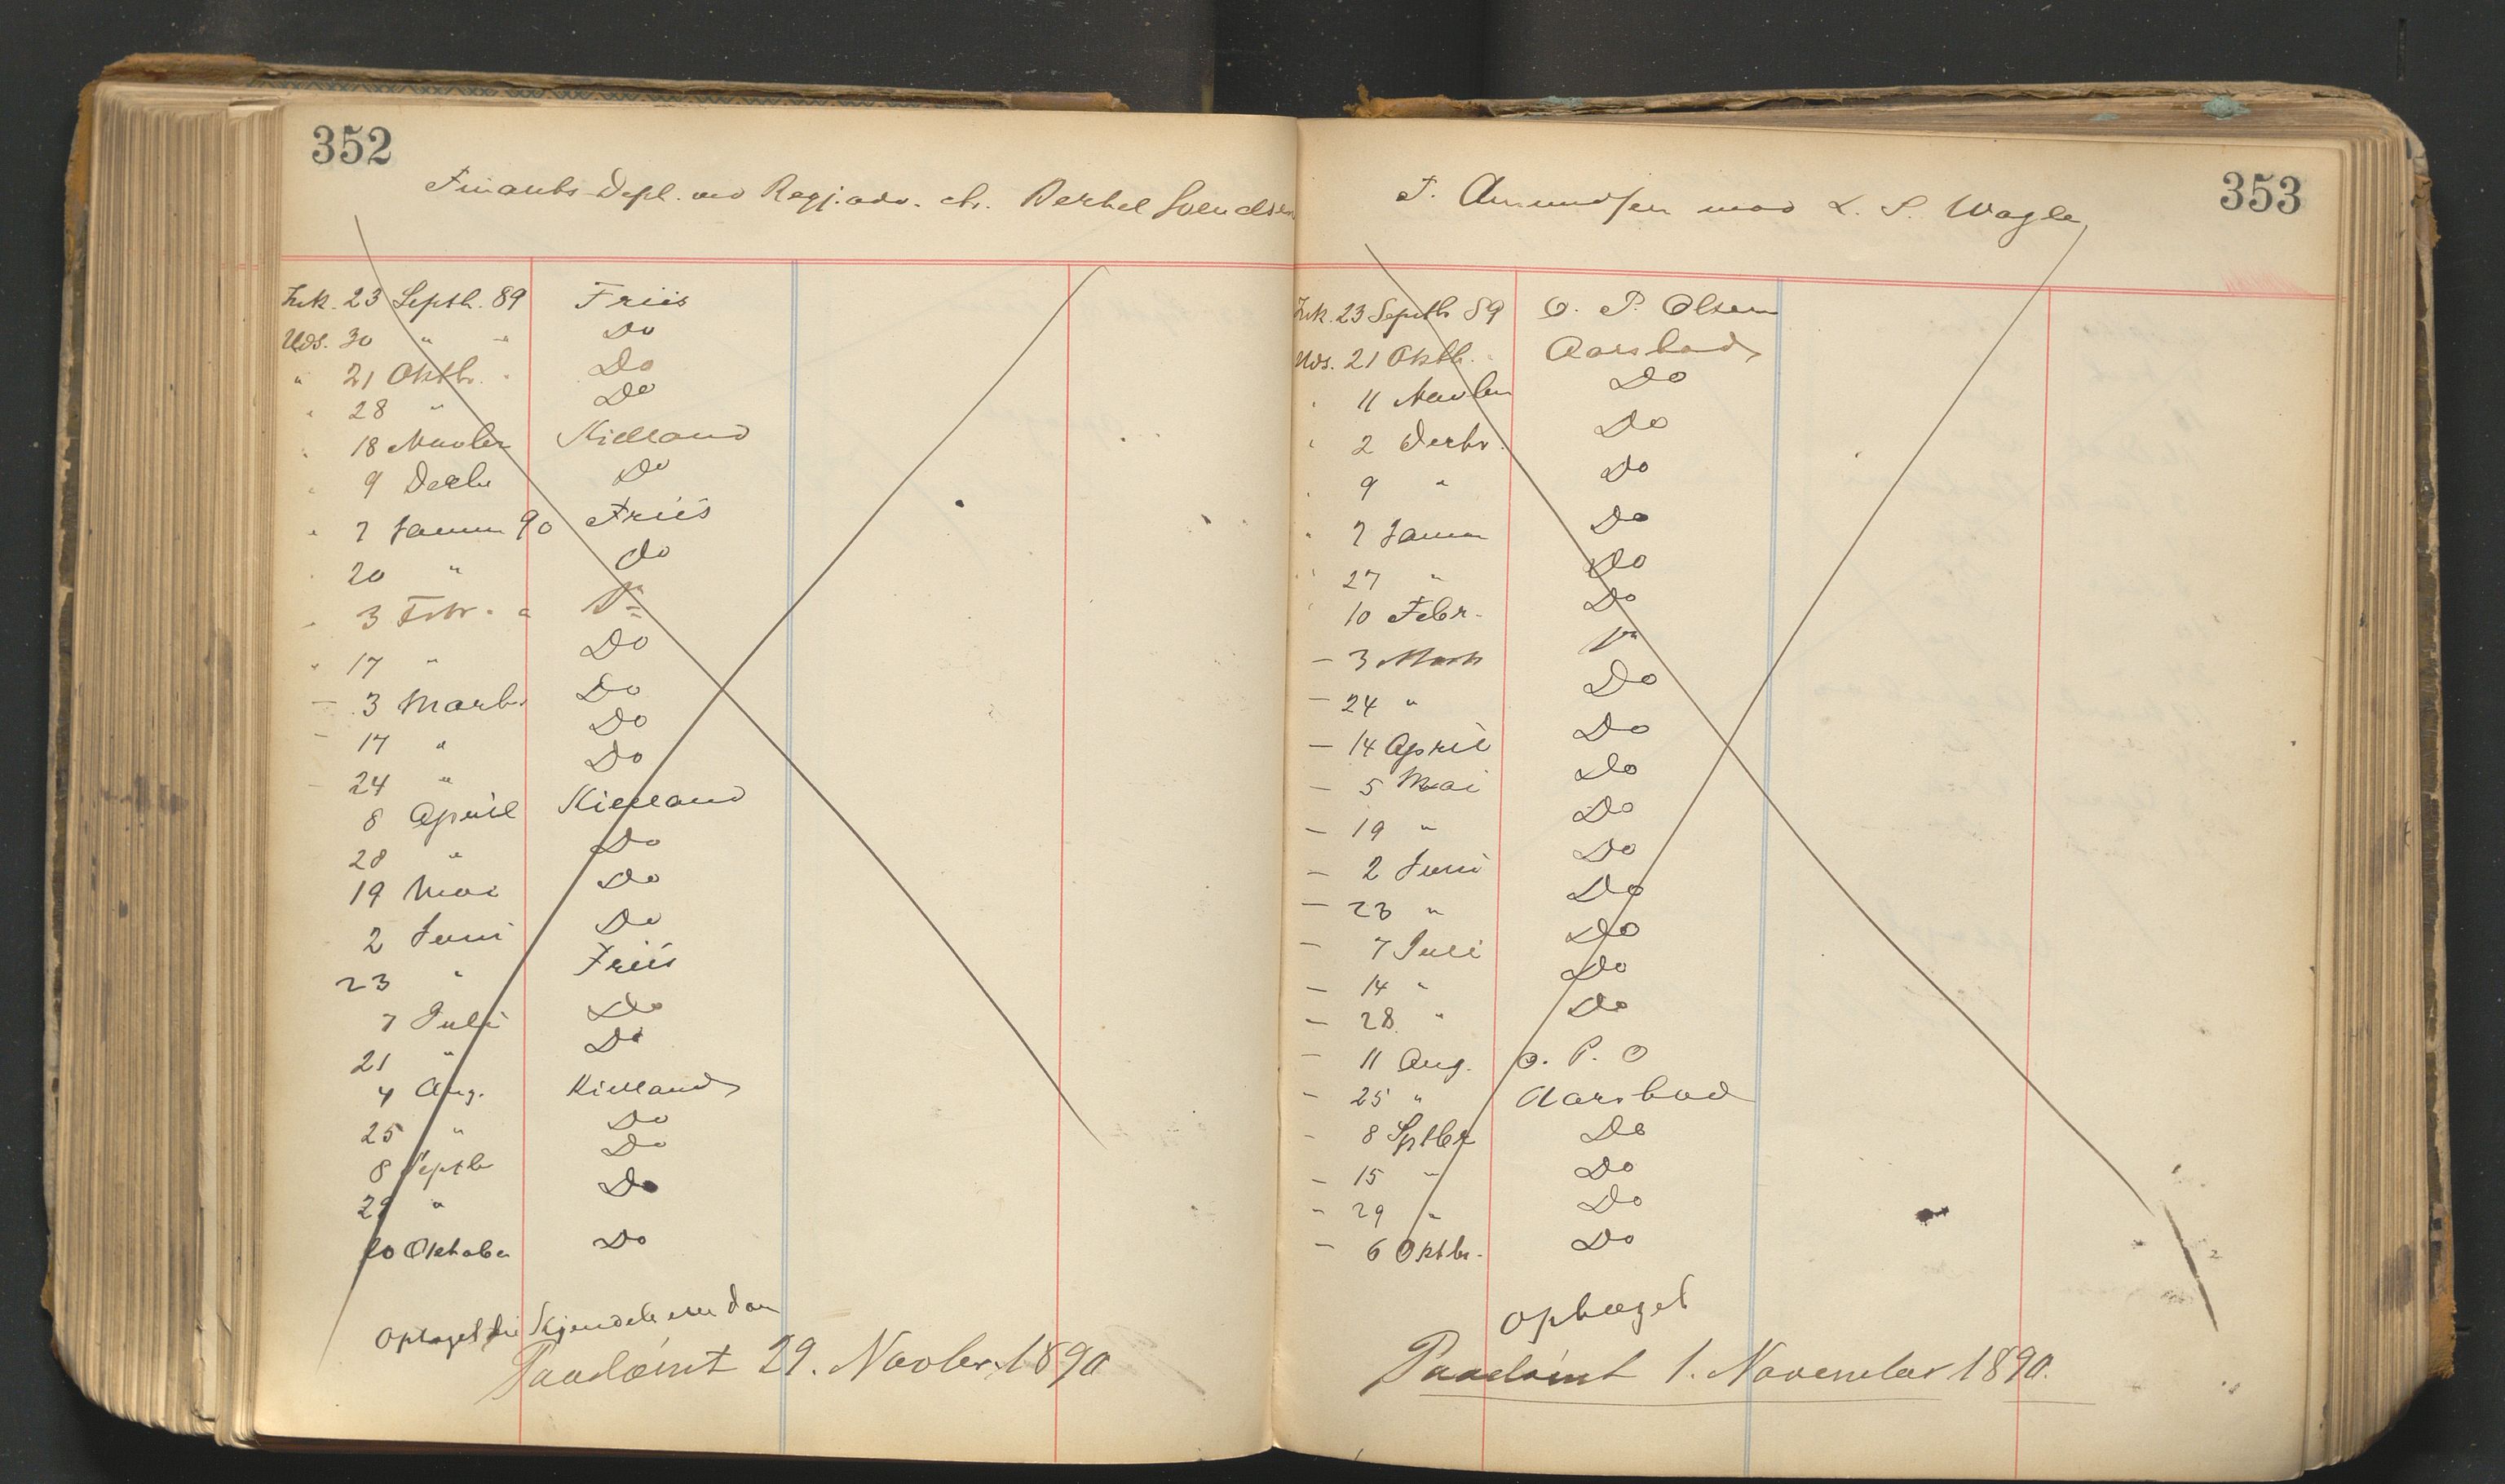 352
Finants-Dept. ved Regj.adv. ctr. Berthel Svendsen
Ink. 23 Septb. 89 Friis
Uds. 30 " " Do
" 21 Oktbr. " Do
" 28 " Do
" 18 Novbr Kielland
" 9 Decbr Do
" 7 Januar 90 Friis
" 20 " do
" 3 Febr. "
" 17 " Do
— 3 Marts Do
— 17 " Do
— 24 " Do
8 April Kielland
28 " Do
19 Mai Do
2 Juni Do
23 " Friis
7 Juli Do
21 " Do
4 Aug. Kielland
25 " Do
8 Septb Do
29 " Do
20 Oktober Do
Optaget til Kjendelse eller dom
Paadømt 29. Novbr. 1890
353
T. Amundsen mod L. S. Wagle
Ink. 23 Septb 89 O. P. Olsen
Uds. 21 Oktb. " Aarstad
" 11 Novbr Do
" 2 Decbr. Do
" 9 " Do
" 7 Januar Do
" 27 " Do
" 10 Febr. Do
— 3 Marts
— 24 " Do
— 14 April Do
— 5 Mai Do
— 19 " Do
— 2 Juni Do
— 23 " Do
— 7 Juli Do
— 14 " Do
— 28 " Do
— 11 Aug. O. P. O
— 25 " Aarstad
— 8 Sptbr Do
— 15 " Do
— 29 " Do
— 6 Oktbr. Do
optaget
Paadømt 1. November 1890.